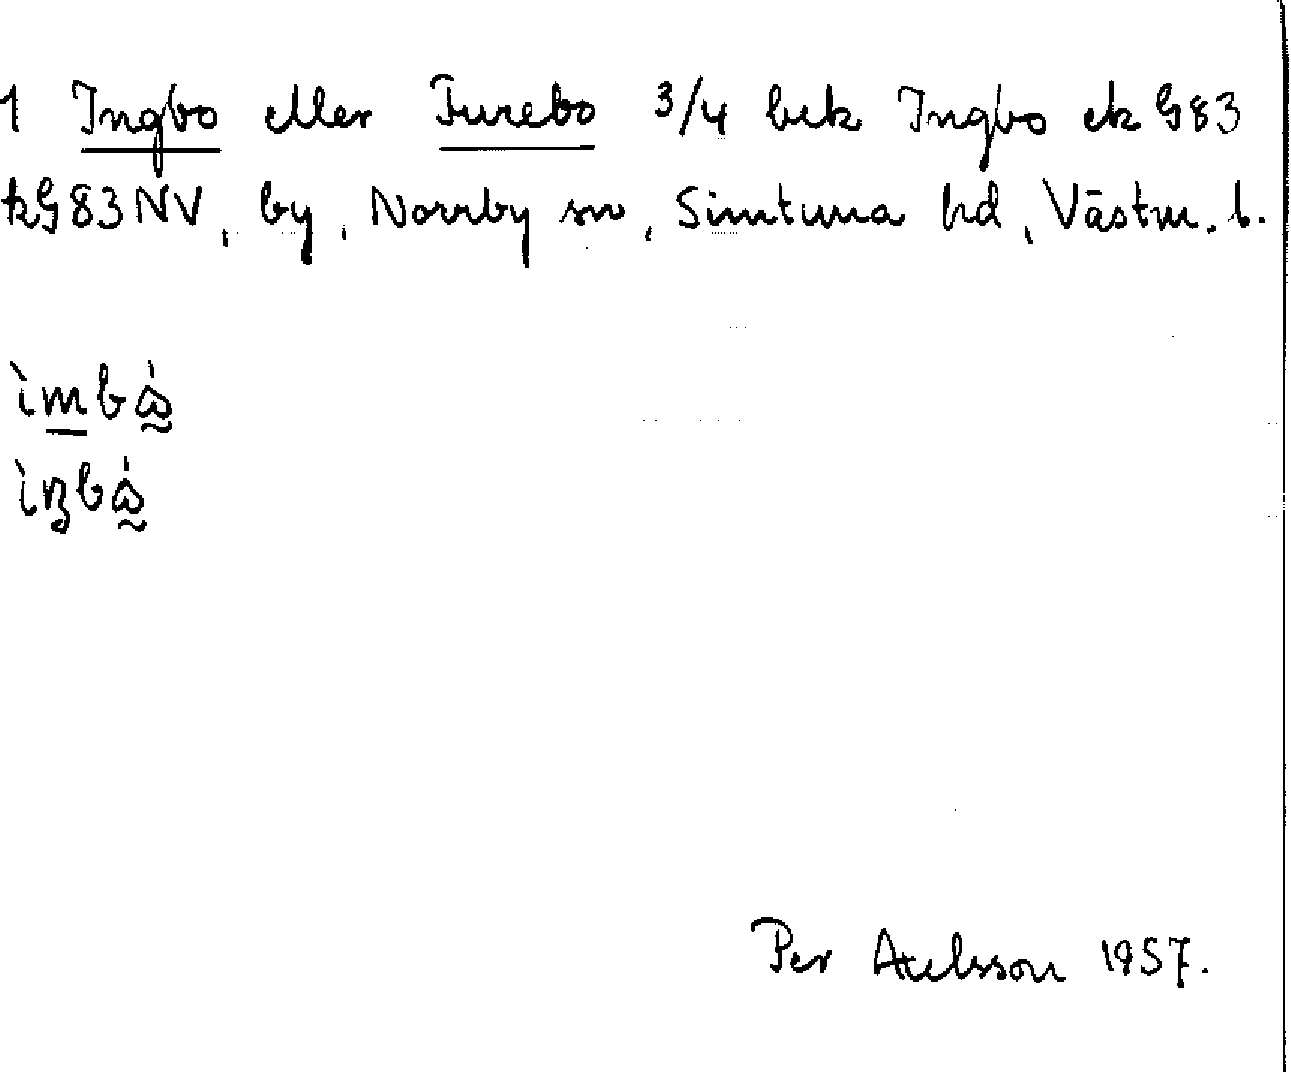 1 Ingbo eller Turebo 3/4 bek Ingbo ek G83
kG83NV, by, Norrby sn, Simtuna hd, Västm. l.
Per Axelsson 1957.